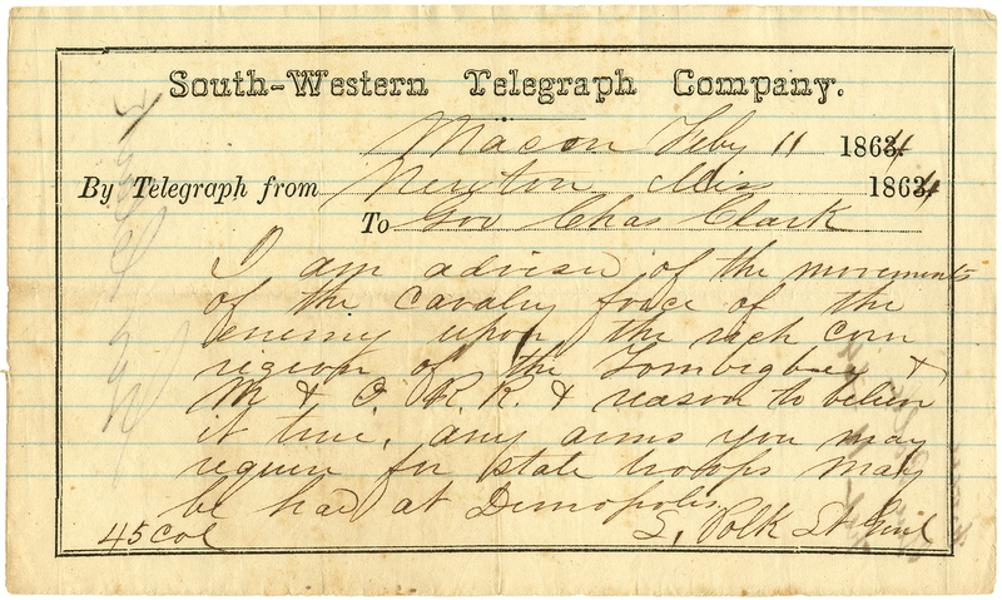 South-Western Telegraph Company.
Macon Feby 11 1864
By Telegraph from Newton Miss 1864
To Gov Chas Clark
I am advised of the movements
of the cavalry force of the
enemy upon the rich corn
region of the Tombigbee &
M & O. R. R. & reason to believe
it true, any arms you may
require for state troops may
be had at Demopolis.
45 col L, Polk Lt Genl